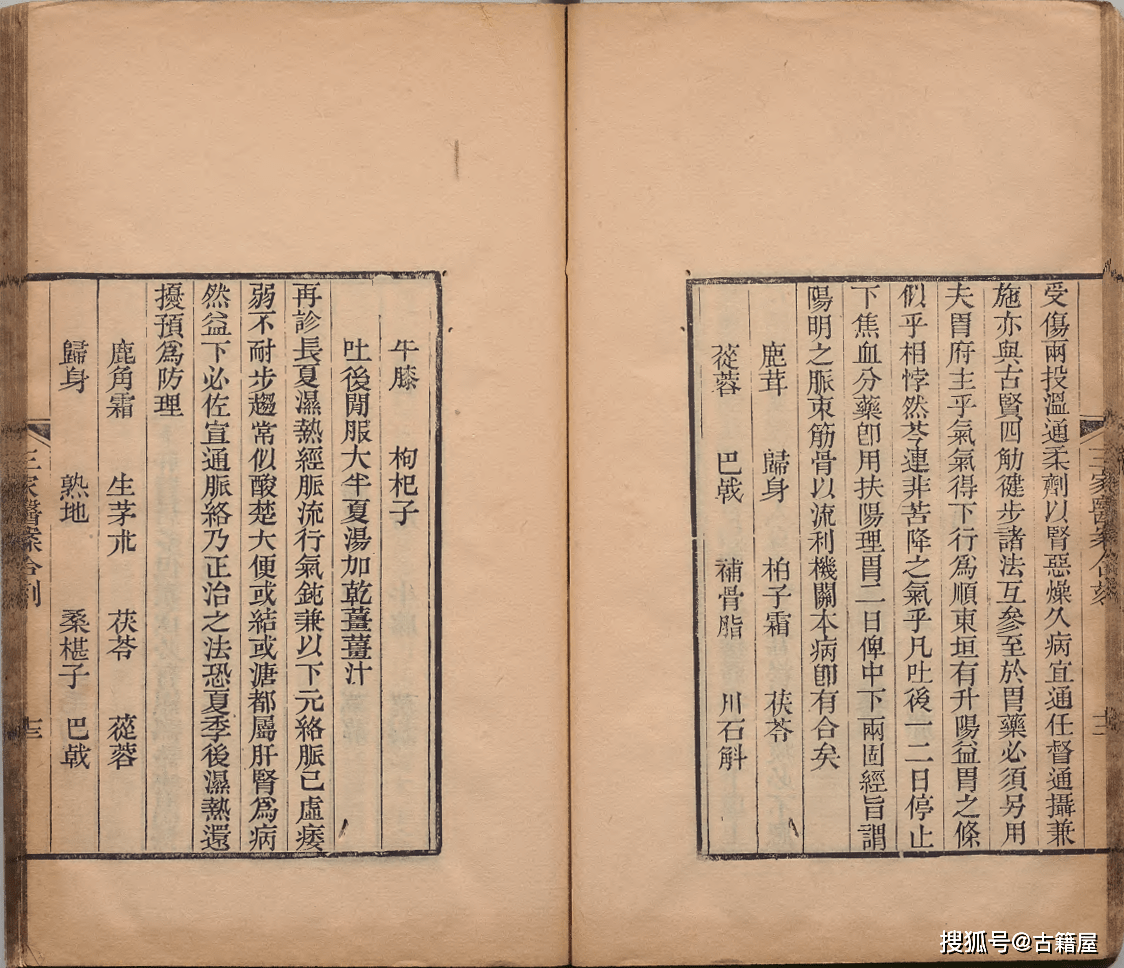 受傷兩投溫通柔劑以腎惡燥久病宜通任督通攝兼
施亦與古賢四觔健步諸法互參至於胃藥必須另用
夫胃府主乎氣氣得下行爲順東垣有升陽益胃之條
似乎相悖然芩連非苦降之氣乎凡吐後一二日停止
下焦血分藥卽用扶陽理胃二日俾中下兩固經旨謂
陽明之脈束筋骨以流利機關本病卽有合矣
鹿茸 歸身 柏子霜 茯苓
蓯蓉 巴戟 補骨脂 川石斛
三家醫案合刻
牛膝 枸杞子
吐後間服大半夏湯加乾薑薑汁
再診長夏濕熱經脈流行氣鈍兼以下元絡脈已虛痿
弱不耐步趨常似酸楚大便或結或溏都屬肝腎爲病
然益下必佐宣通脈絡乃正治之法恐夏季後濕熱還
擾預爲防理
鹿角霜 生茅朮 茯苓 蓯蓉
歸身 熟地 桑椹子 巴戟
三家醫案合刻
搜狐号@古籍屋